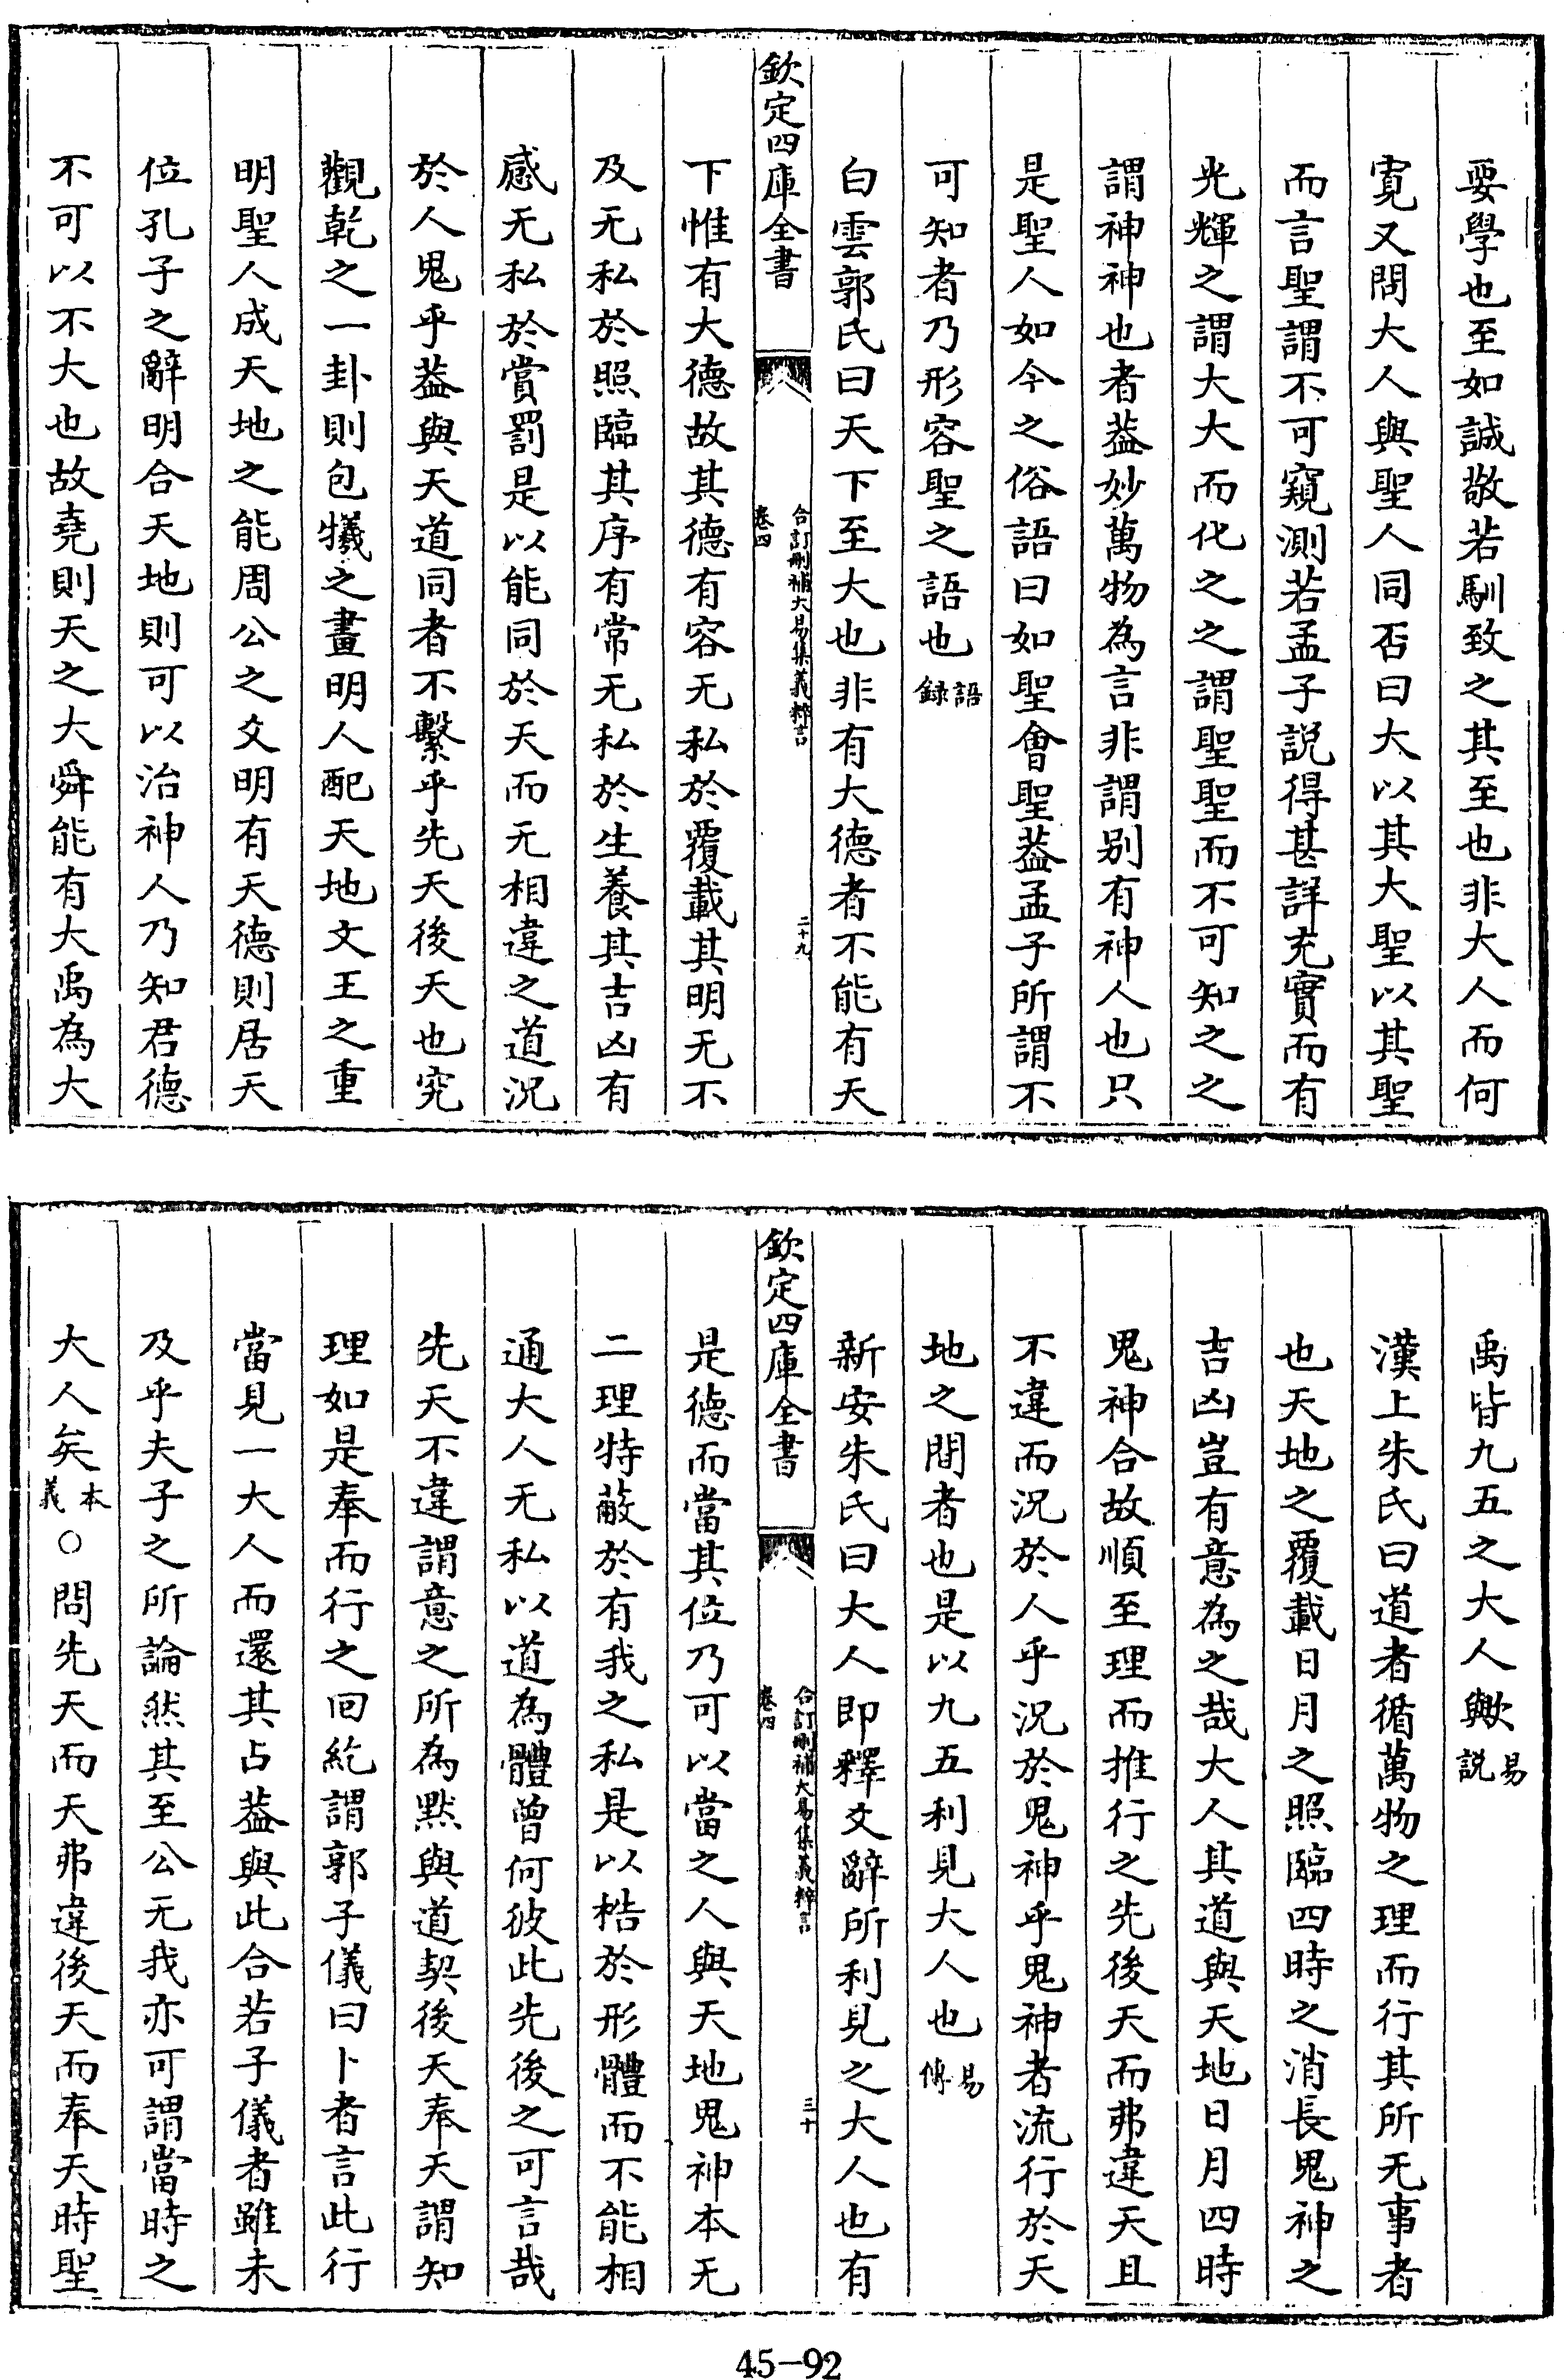 要學也至如誠敬若馴致之其至也非大人而何
寛又問大人與聖人同否曰大以其大聖以其聖
而言聖謂不可窺測若孟子說得甚詳充實而有
光輝之謂大大而化之之謂聖聖而不可知之之
謂神神也者葢妙萬物為言非謂别有神人也只
是聖人如今之俗語曰如聖會聖葢孟子所謂不
可知者乃形容聖之語也語録
白雲郭氏曰天下至大也非有大德者不能有天
欽定四庫全書
合訂刪補大易集義粹言
卷四
二十九
下惟有大德故其德有容无私於覆載其明无不
及无私於照臨其序有常无私於生養其吉凶有
感无私於賞罰是以能同於天而无相違之道況
於人鬼乎葢與天道同者不繫乎先天後天也究
觀乾之一卦則包犧之畫明人配天地文王之重
明聖人成天地之能周公之爻明有天德則居天
位孔子之辭明合天地則可以治神人乃知君德
不可以不大也故堯則天之大舜能有大禹為大
禹皆九五之大人歟易說
漢上朱氏曰道者循萬物之理而行其所无事者
也天地之覆載日月之照臨四時之消長鬼神之
吉凶豈有意為之哉大人其道與天地日月四時
鬼神合故順至理而推行之先後天而弗違天且
不違而況於人乎況於鬼神乎鬼神者流行於天
地之間者也是以九五利見大人也易傳
新安朱氏曰大人即釋爻辭所利見之大人也有
欽定四庫全書
合訂刪補大易集義粹言
卷四
三十
是德而當其位乃可以當之人與天地鬼神本无
二理特蔽於有我之私是以梏於形體而不能相
通大人无私以道為體曾何彼此先後之可言哉
先天不違謂意之所為黙與道契後天奉天謂知
理如是奉而行之回紇謂郭子儀曰卜者言此行
當見一大人而還其占葢與此合若子儀者雖未
及乎夫子之所論然其至公无我亦可謂當時之
大人矣本義○問先天而天弗違後天而奉天時聖
45-92